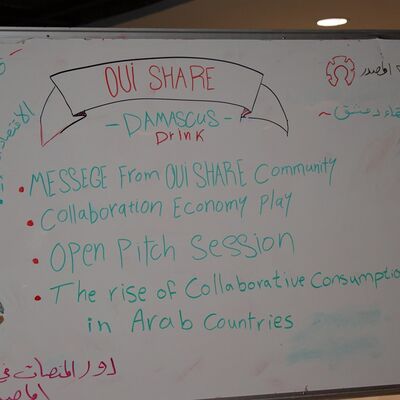 OUI SHARE
- DAMASCUS -
Drink
المصدر
دمشق ~
• MESSEGE From OUI SHARE Community
• Collaboration Economy Play
• Open Pitch Session
• The rise of Collaborative Consumptio
in Arab Countries
دور المنصات في